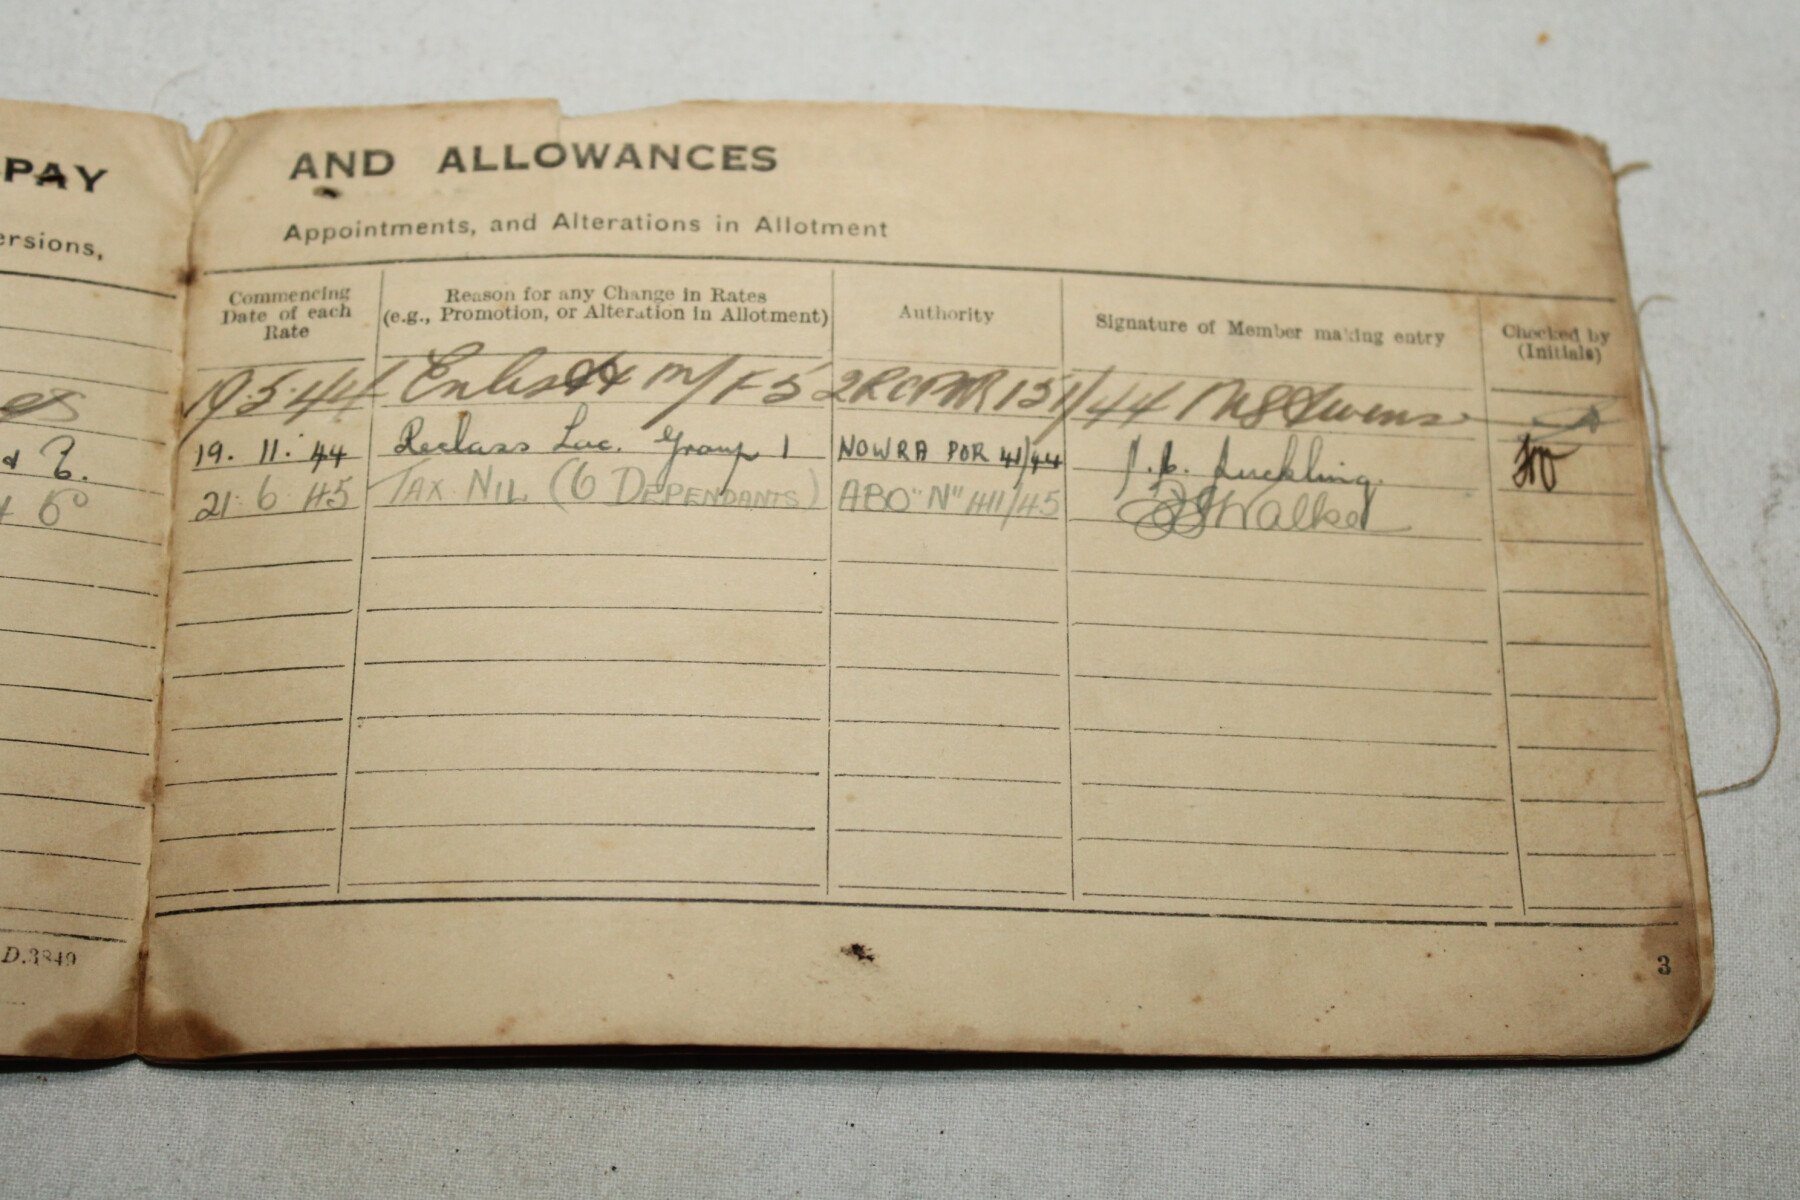 PAY
AND ALLOWANCES
ersions,
Appointments, and Alterations in Allotment
Commencing Date of each Rate
Reason for any Change in Rates (e.g., Promotion, or Alteration in Allotment)
Authority
Signature of Member making entry
Checked by (Initials)
19.5.44 Enlist
19. 11. 44 Reclass Lac. Group 1 NOWRA POR 41/44
21 6 45 TAX NIL (6 DEPENDANTS) ABO "N" 411/45 Walker
D.3849
3